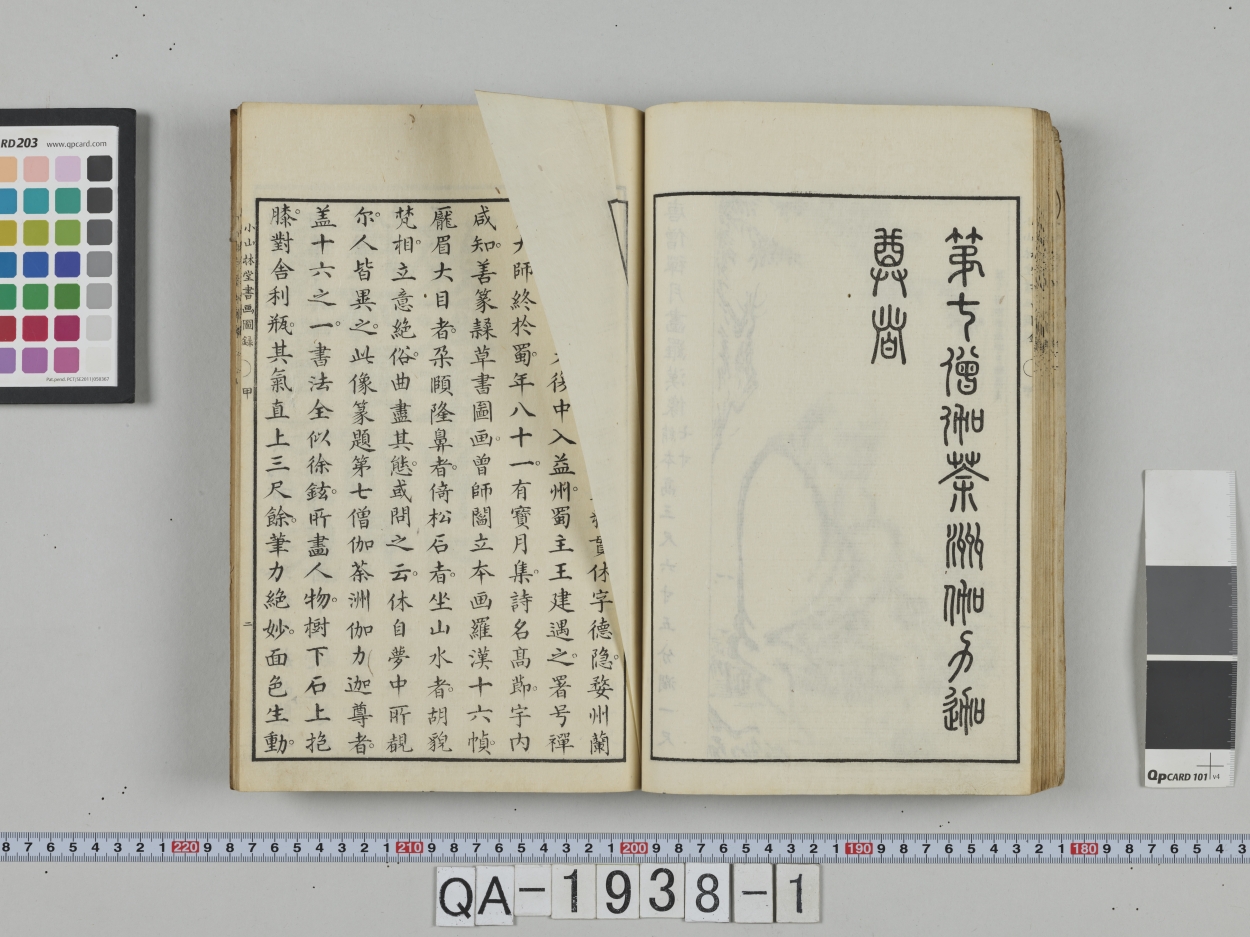 第七僧伽荼洲伽力迦
尊者
貫休字德隐婺州蘭
後中入益州。蜀主王建遇之。署号禪
大師終於蜀。年八十一。有寳月集。詩名髙節。字内
咸知。善篆隸草書圖画。曾師閻立夲画羅漢十六幀。
龎眉大目者。朶頤隆鼻者。倚松石者。坐山水者。胡貌
梵相。立意絶俗。曲盡其態。或問之云。休自夢中所覩
尔。人皆異之。此像篆題第七僧伽荼洲伽力迦尊者。
盖十六之一。書法全似徐鉉。所畫人物。樹下石上抱
膝。對舍利瓶。其氣直上三尺餘。筆力絶妙。面色生動。
小山林堂書画圖録
甲
二
CARD 203
www.qpcard.com
Qp CARD 101 v4
8 7 6 5 4 3 2 1 220 9 8 7 6 5 4 3 2 1 210 9 8 7 6 5 4 3 2 1 200 9 8 7 6 5 4 3 2 1 190 9 8 7 6 5 4 3 2 1 180 9 8 7 6 5 4 3
QA-1938-1